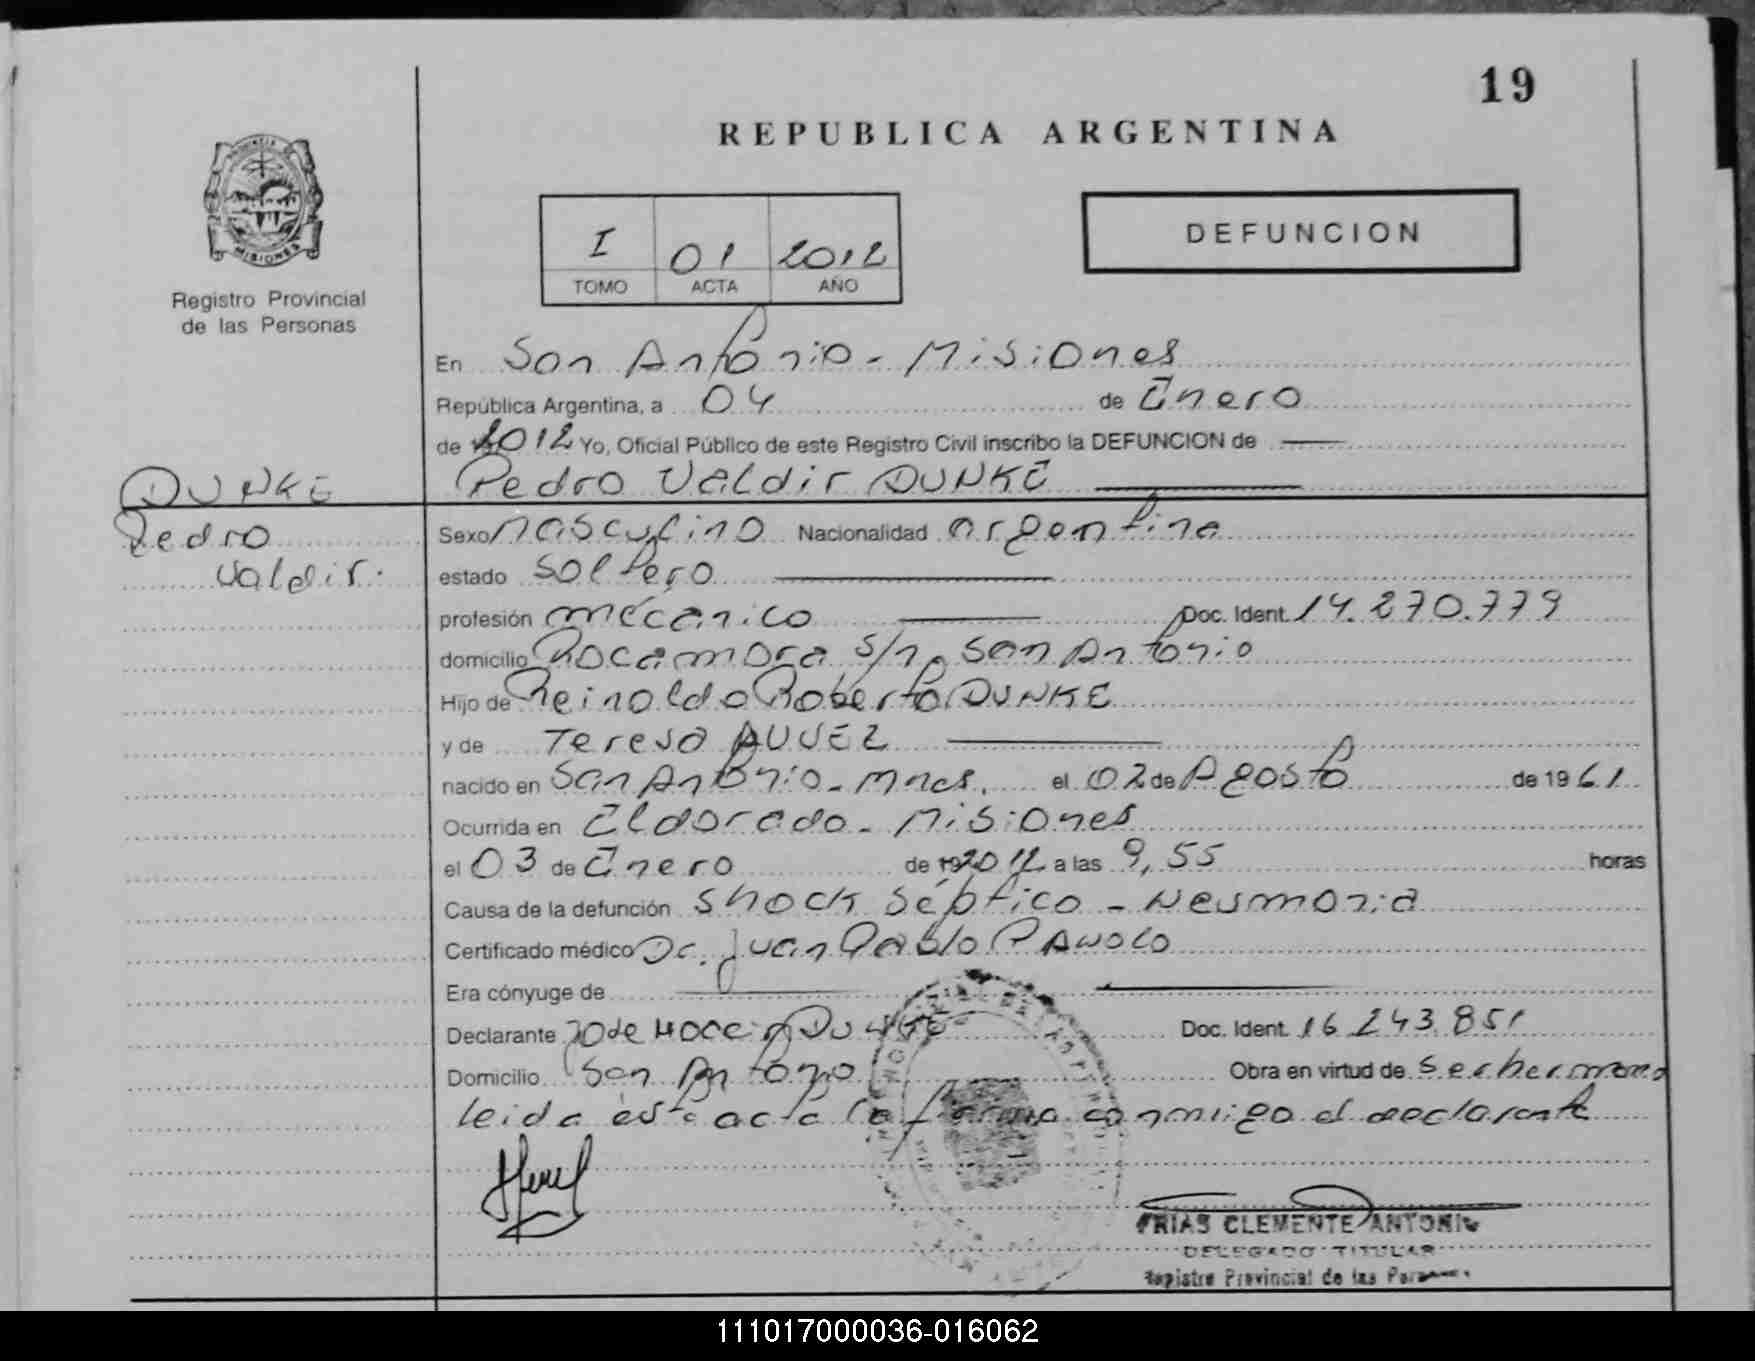 19
REPUBLICA ARGENTINA
PROVINCIA DE
MISIONES
Registro Provincial
de las Personas
I 01 2012
TOMO ACTA AÑO
DEFUNCION
En San Antonio - Misiones
República Argentina, a 04 de Enero
de 2012 Yo, Oficial Público de este Registro Civil inscribo la DEFUNCION de
Pedro Valdir DUNKE
DUNKE
Pedro
Valdir.
Sexo masculino Nacionalidad argentina
estado soltero
profesión mécánico Doc. Ident. 14.270.779
domicilio Rocamora s/n, San Antonio
Hijo de Reinoldo Roberto DUNKE
y de Teresa
nacido en San Antonio - Mnes. el 02 de Agosto de 1961
Ocurrida en Eldorado - Misiones
el 03 de Enero de 2012 a las 9,55 horas
Causa de la defunción Shock Séptico - Neumonia
Certificado médico Dr. Juan Pablo
Era cónyuge de
Declarante DUNKE Doc. Ident. 16.243.851
Domicilio San Antonio Obra en virtud de ser hermano
leida ésta acta la firma conmigo el declarante
FRIAS CLEMENTE ANTONIO
DELEGADO TITULAR
Registro Provincial de las Personas
111017000036-016062